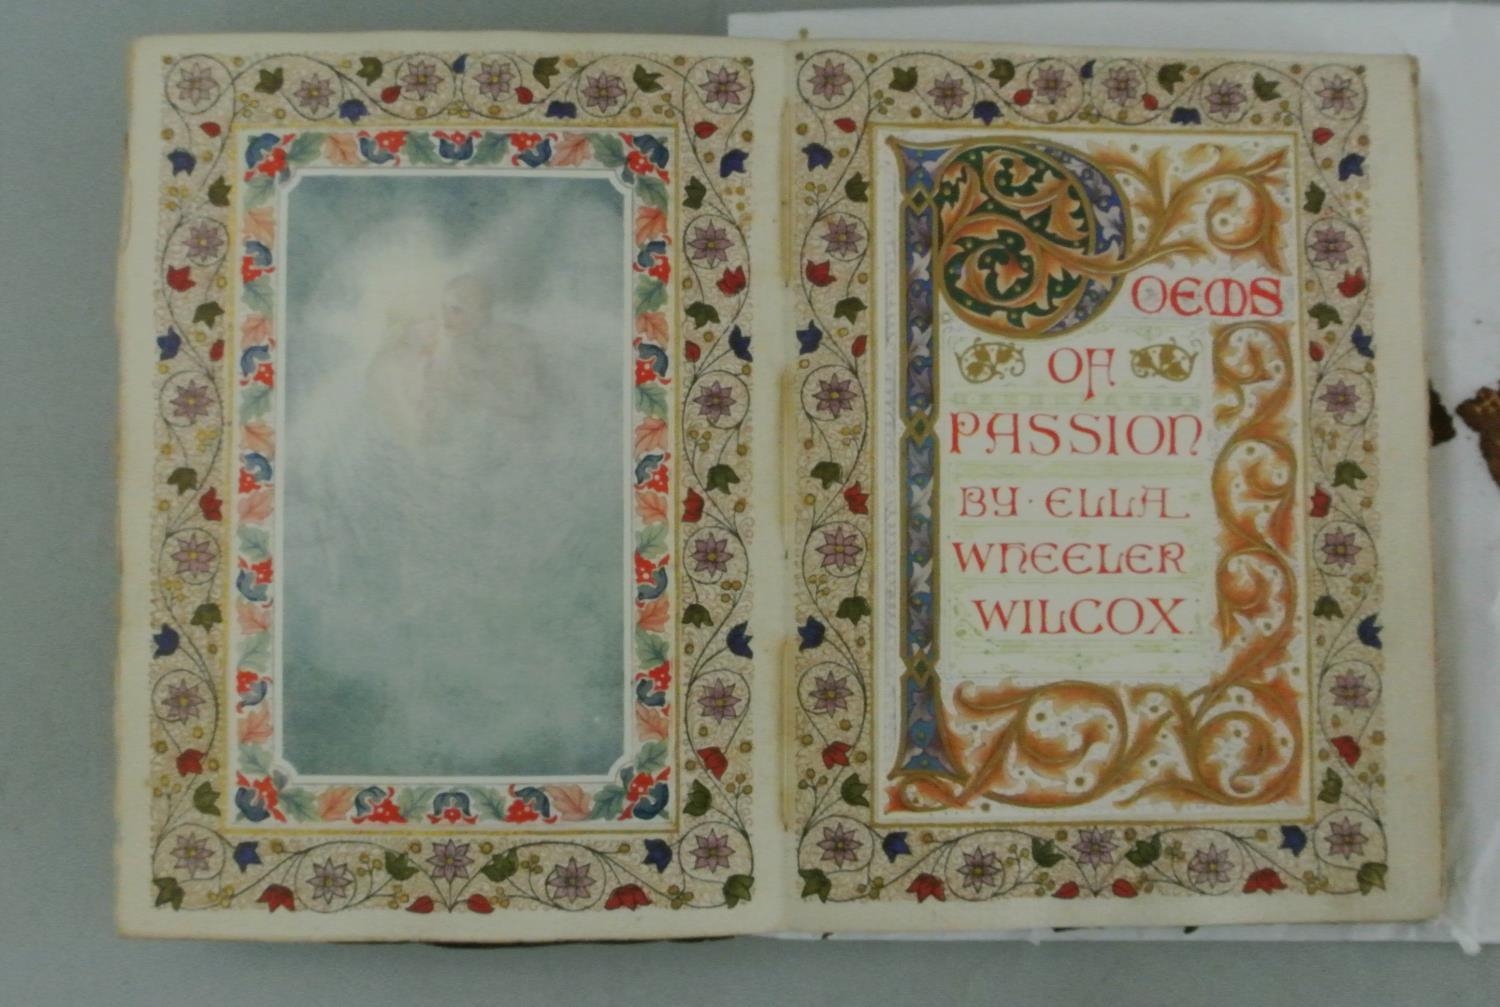 POEMS
OF
PASSION
BY · ELLA
WHEELER
WILCOX.